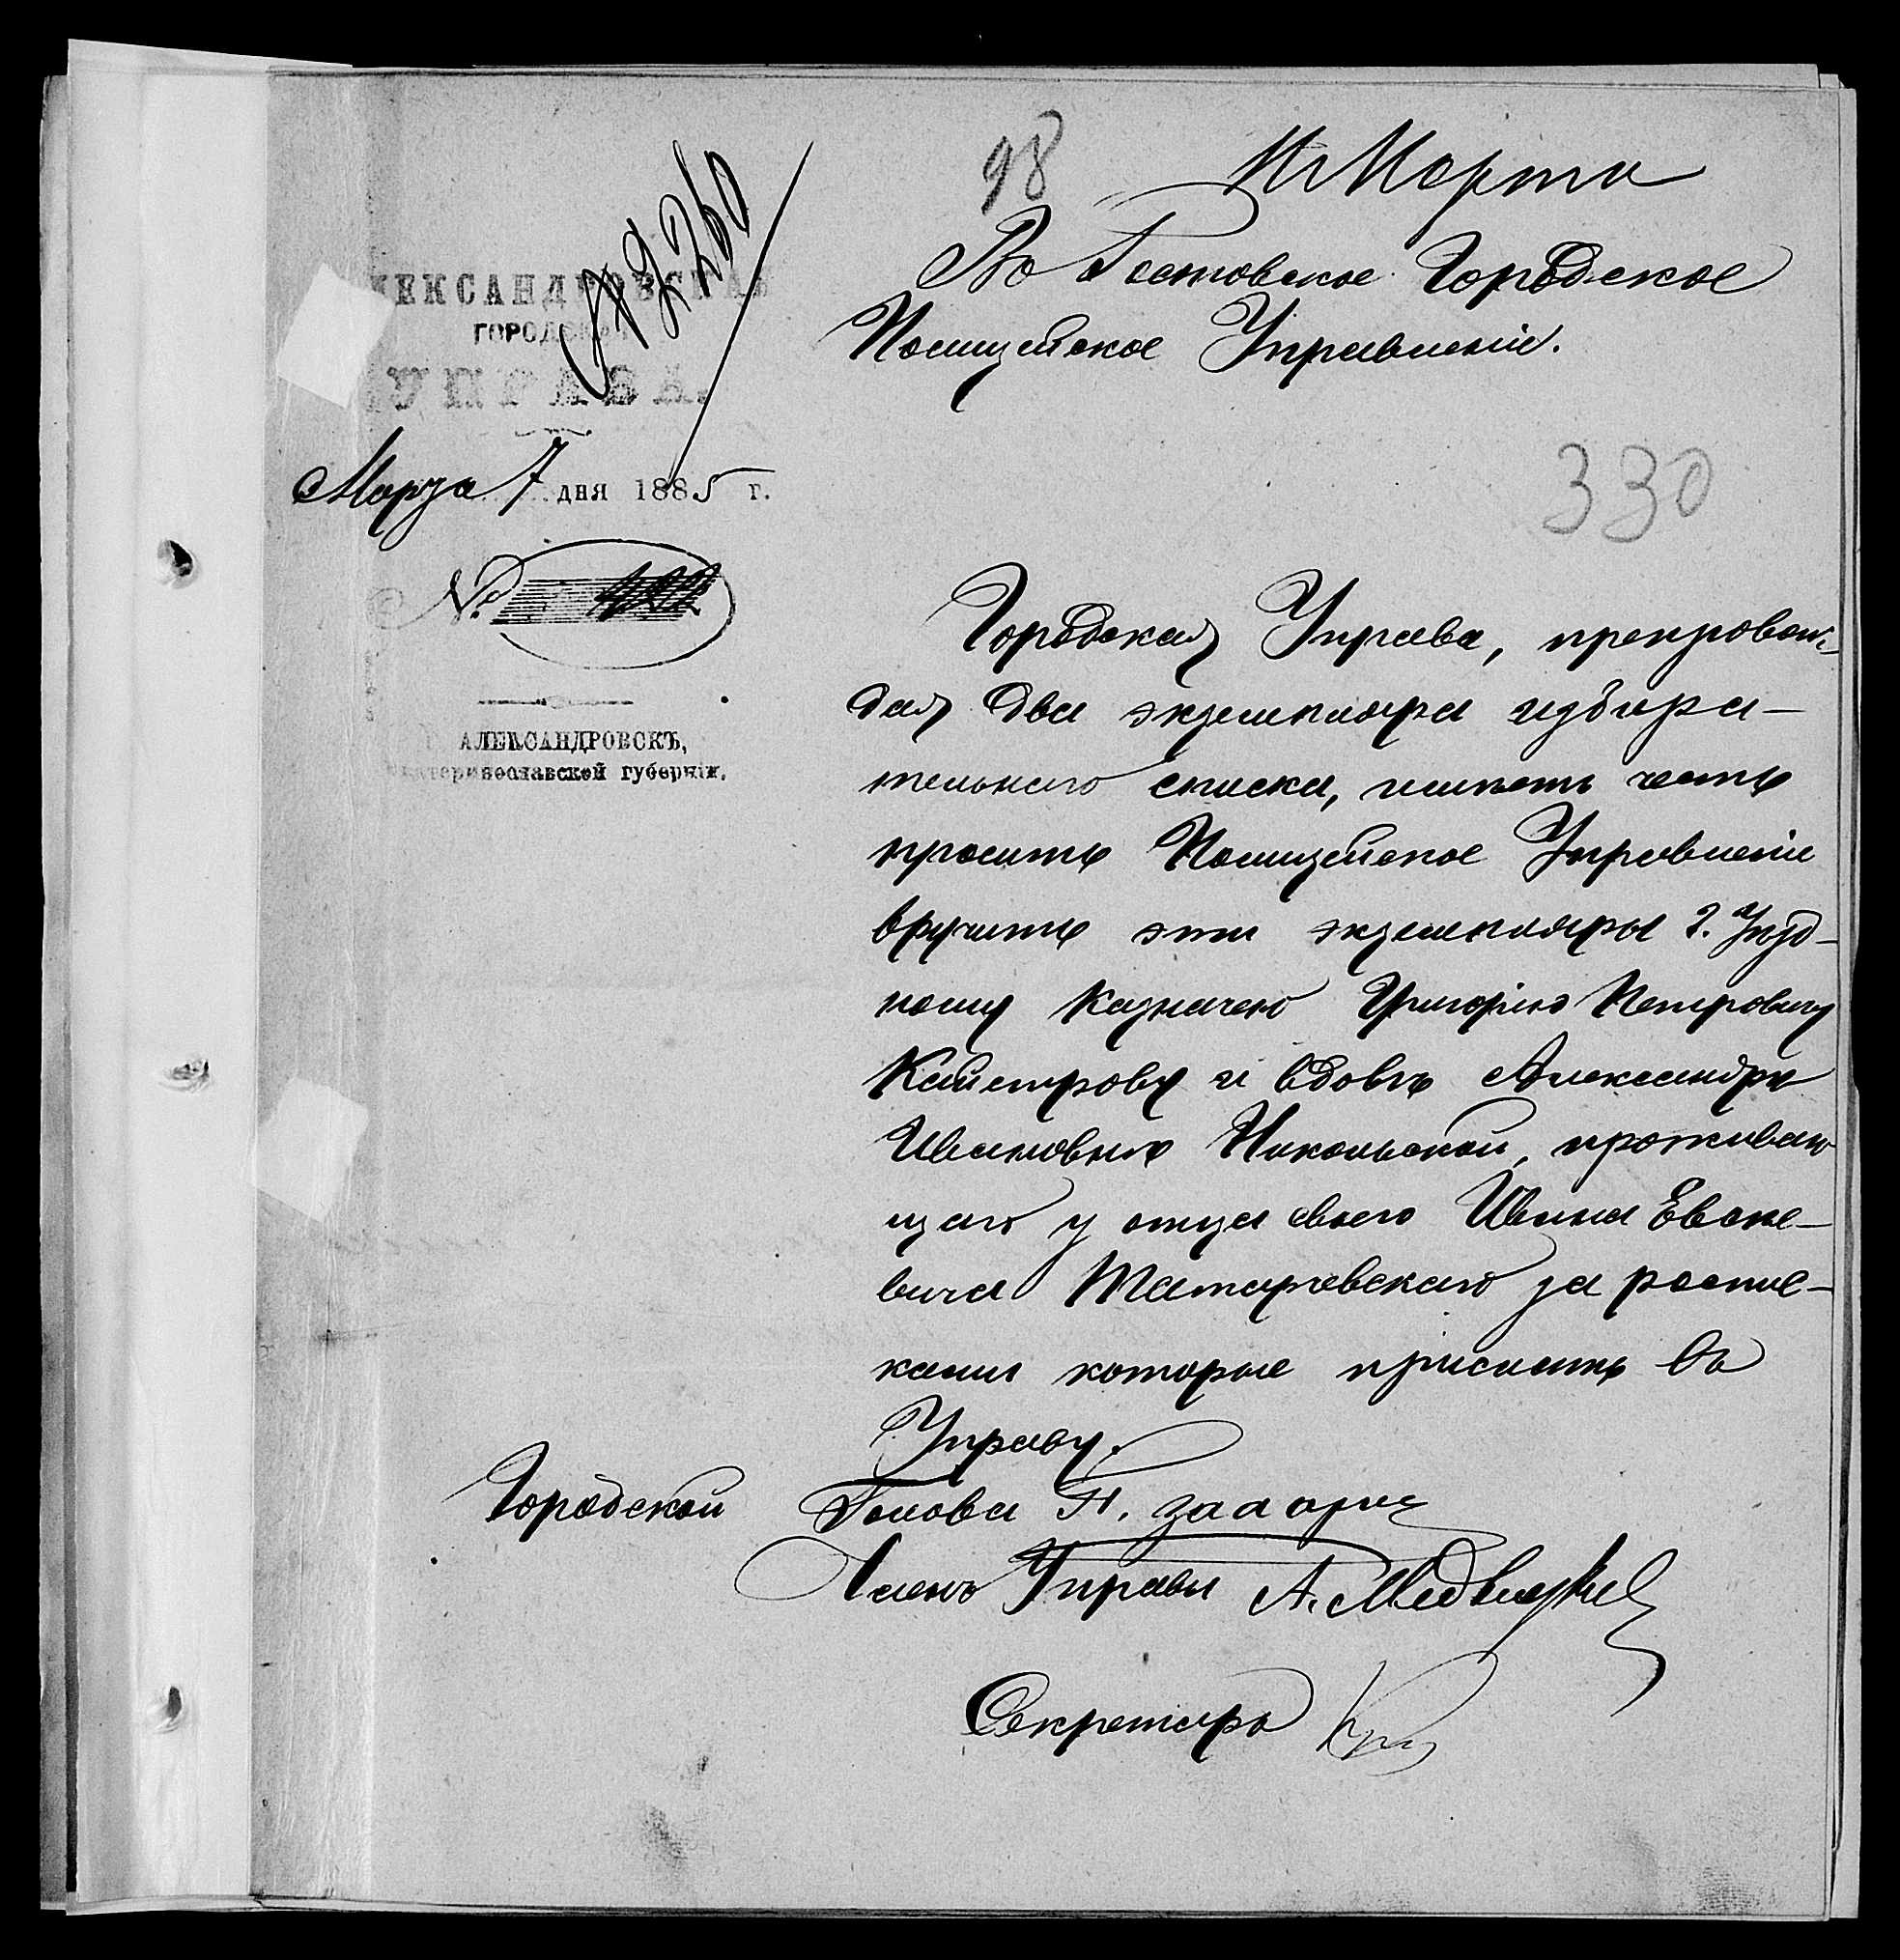 98
Марта
№ 3260
Въ Ростовское Городское
Полицейское Управленіе.
АЛЕКСАНДРОВСКАЯ
ГОРОДСКАЯ
УПРАВА.
Марта 7 дня 1885 г.
330
№
АЛЕКСАНДРОВСКЪ,
Екатеринославской губерніи.
Городская Управа, препровож-
дая два экземпляра избира-
тельнаго списка, имѣетъ честь
просить Полицейское Управленіе
вручить эти экземпляры г. Уѣзд-
ному Казначею Григорію Петровичу
Кайстрову и вдовѣ Александрѣ
Ивановнѣ Никольской, проживаю
щаго у отца своего Ивана Евсее-
вича Татаревскаго за роспис-
ками которые прислать въ
Управу.
Городской Голова
Членъ Управы А. Медвѣдевъ
Секретарь